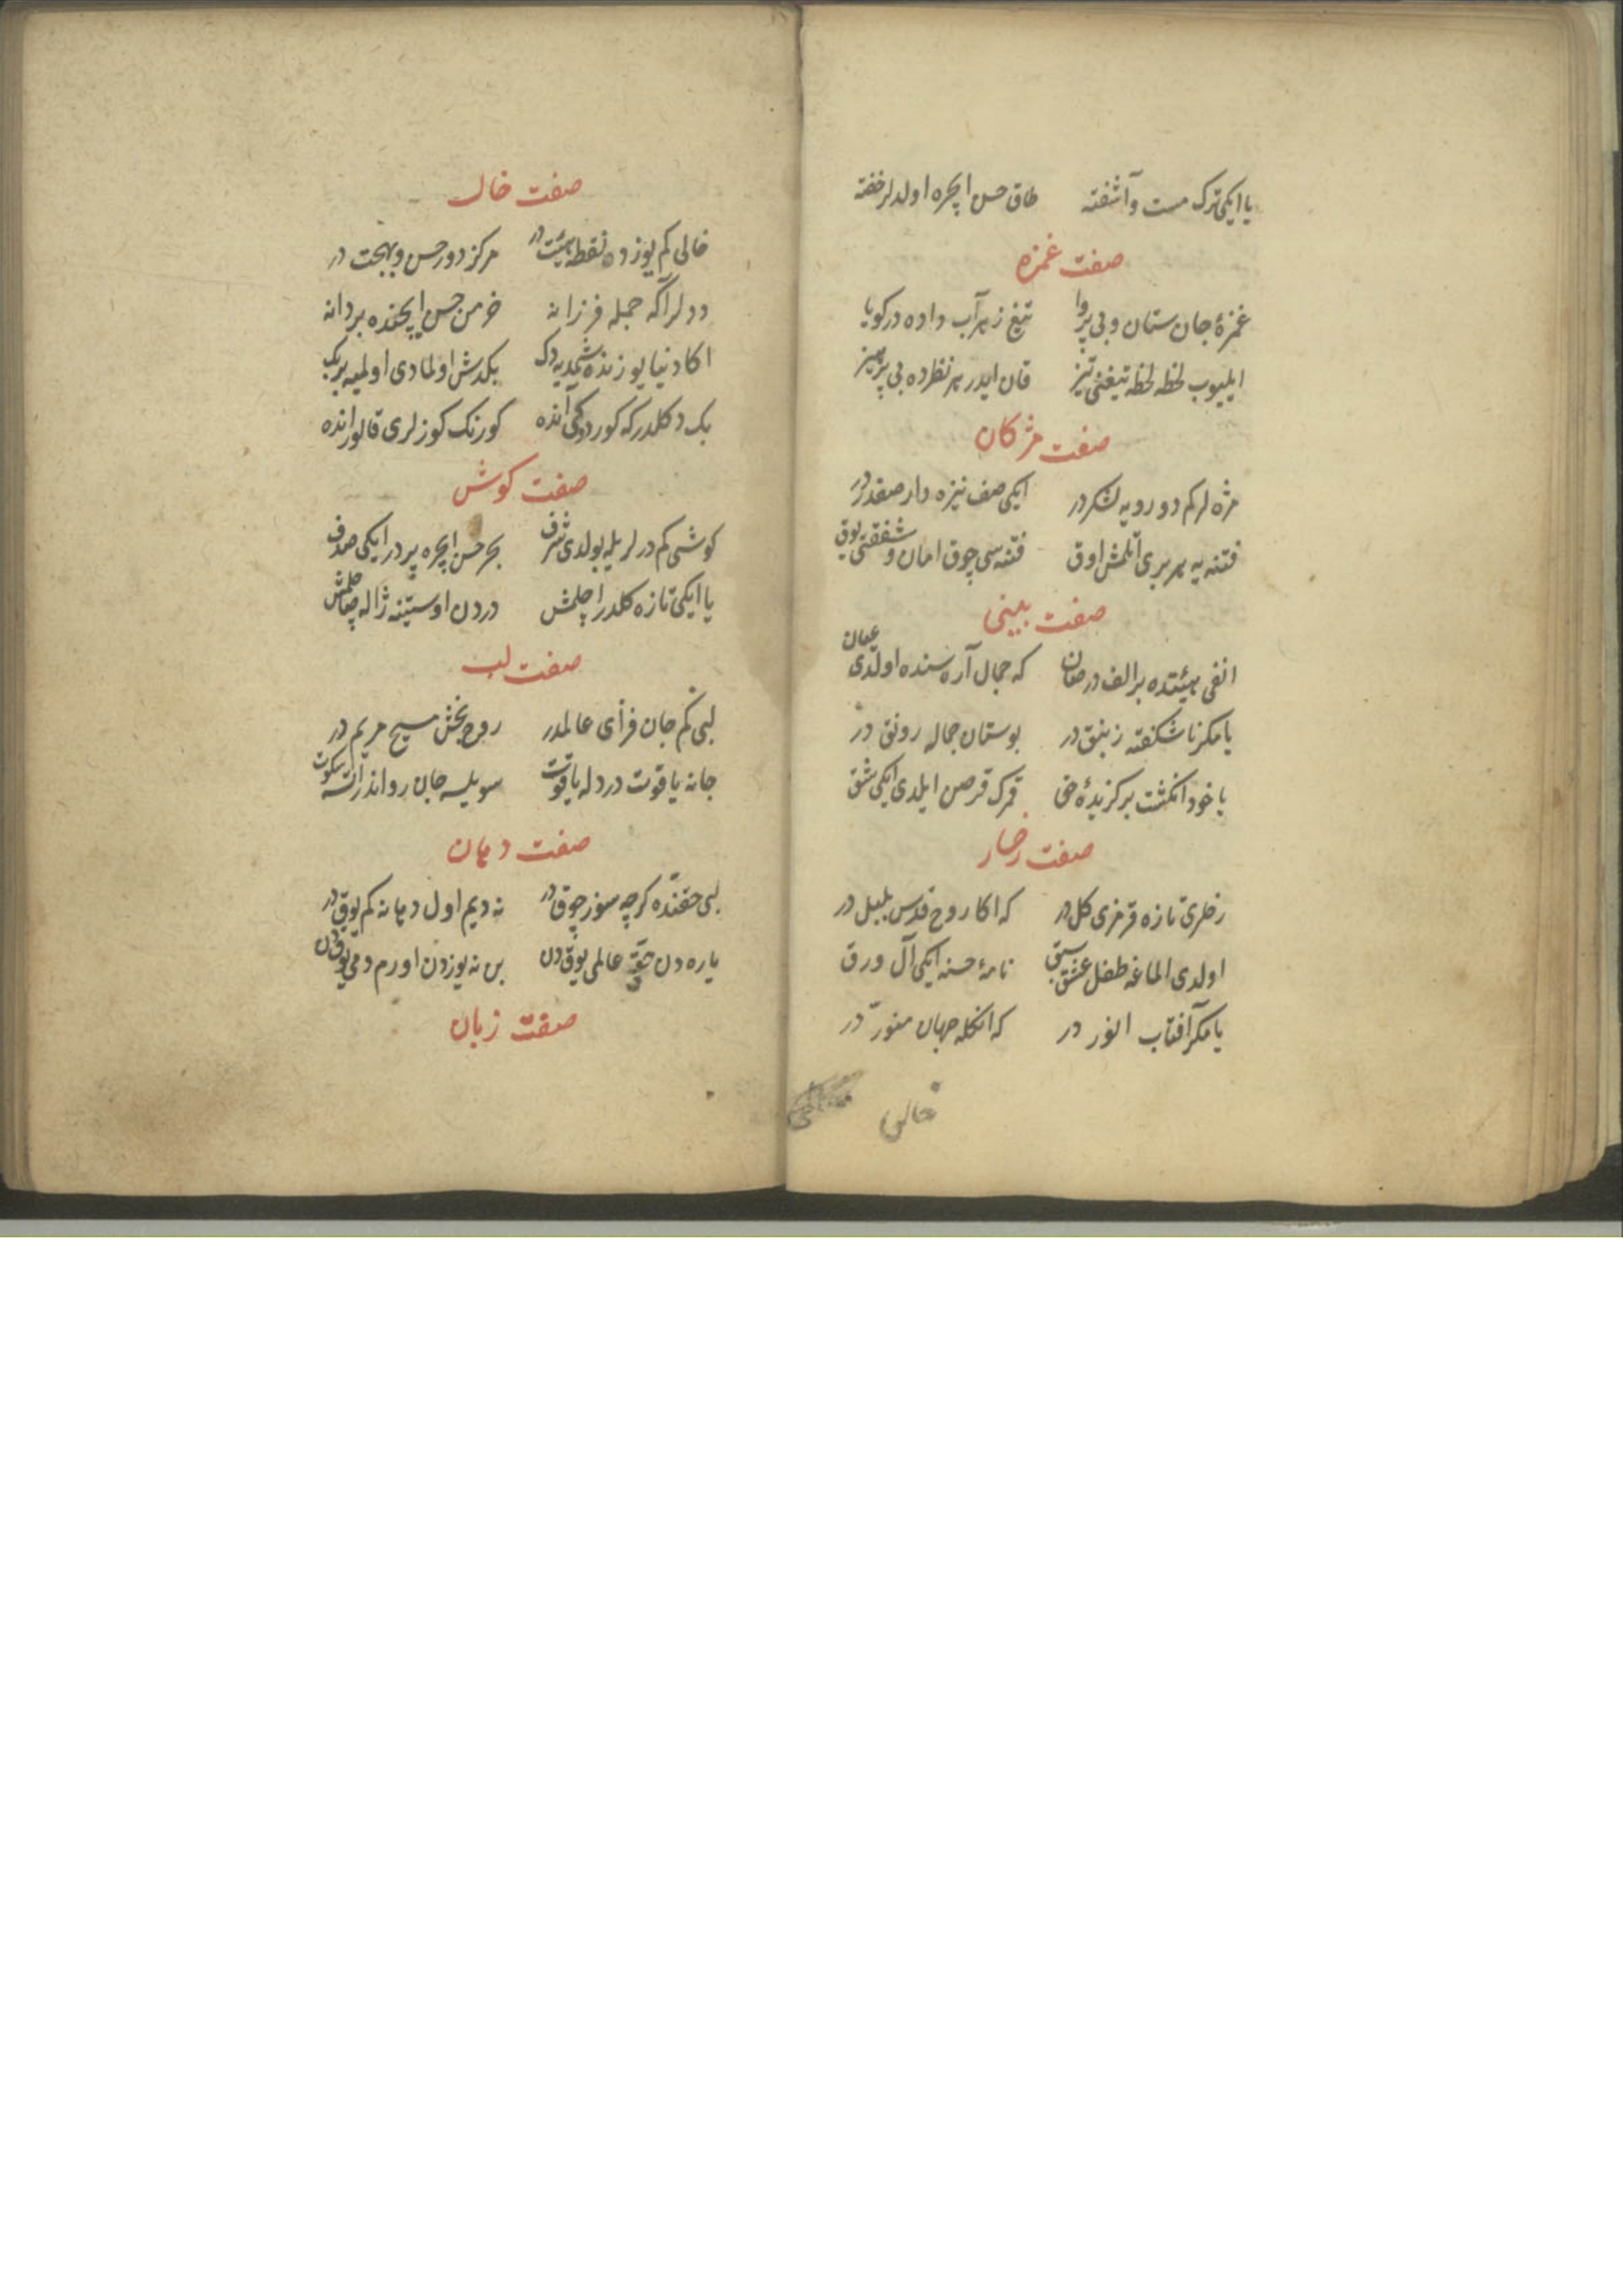 یا ایکی ترک مست و آشفته طاق حسن ایچره اولدلر خفته
صفت غمزه
غمزهٔ جان ستان و بی پروا تیغ زهر آب داده در کویا
ایلیوب لحظه لحظه تیغنی تیز قان ایدر هر نظرده بی پرهیز
صفت مژکان
مژه لر کم دو رویه لشکر در ایکی صف نیزه دار صفدر در
فتنه یه هر بری آتلمش اوق فتنه سی چوق امان و شفقتی یوق
صفت بینی
انفی هیئتده بر الف در همان که جمال آره سنده اولدی عیان
یا مکر ناشکفته زنبق در بوستان جماله رونق در
یا خود انکشت برکزیدهٔ حق قمرک قرصن ایلدی ایکی شق
صفت رخسار
رخلری تازه قرمزی کل در که اکا روح قدس بلبل در
اولدی الماغه طفل عشق سبق نامهٔ حسنه ایکی آل ورق
یا مکر آفتاب انور در که انکله جهان منور در
خالی
صفت خال
خالی کم یوزده نقطه هیئت در مرکز دور حسن و بهجت در
دولر اکه جمله فرزانه خرمن حسن ایچنده بر دانه
اکا دنیا یوزنده شمدیه دک بکدش اولمادی اولمیه بر بک
بک دکلدر که کوردوکی آنده کورنک کوزلری قالور انده
صفت کوش
کوشی کم درلر یله بولدی شرف بحر حسن ایچره پر در ایکی صدف
یا ایکی تازه کلدر اچلمش دردن اوستنه ژاله صاچلمش
صفت لب
لبی کم جان فزای عالمدر روح بخش مسیح مریم در
جانه یاقوت در دله یاقوت سویلسه جان روان ایدر اتسه سکوت
صفت دهان
لبی حقنده کرچه سوز چوق در نه دیم اول دهانه کم یوق در
یاره دن حق عالمی یوقدن بن نه یوزدن اورم دمی یوقدن
صفت زبان